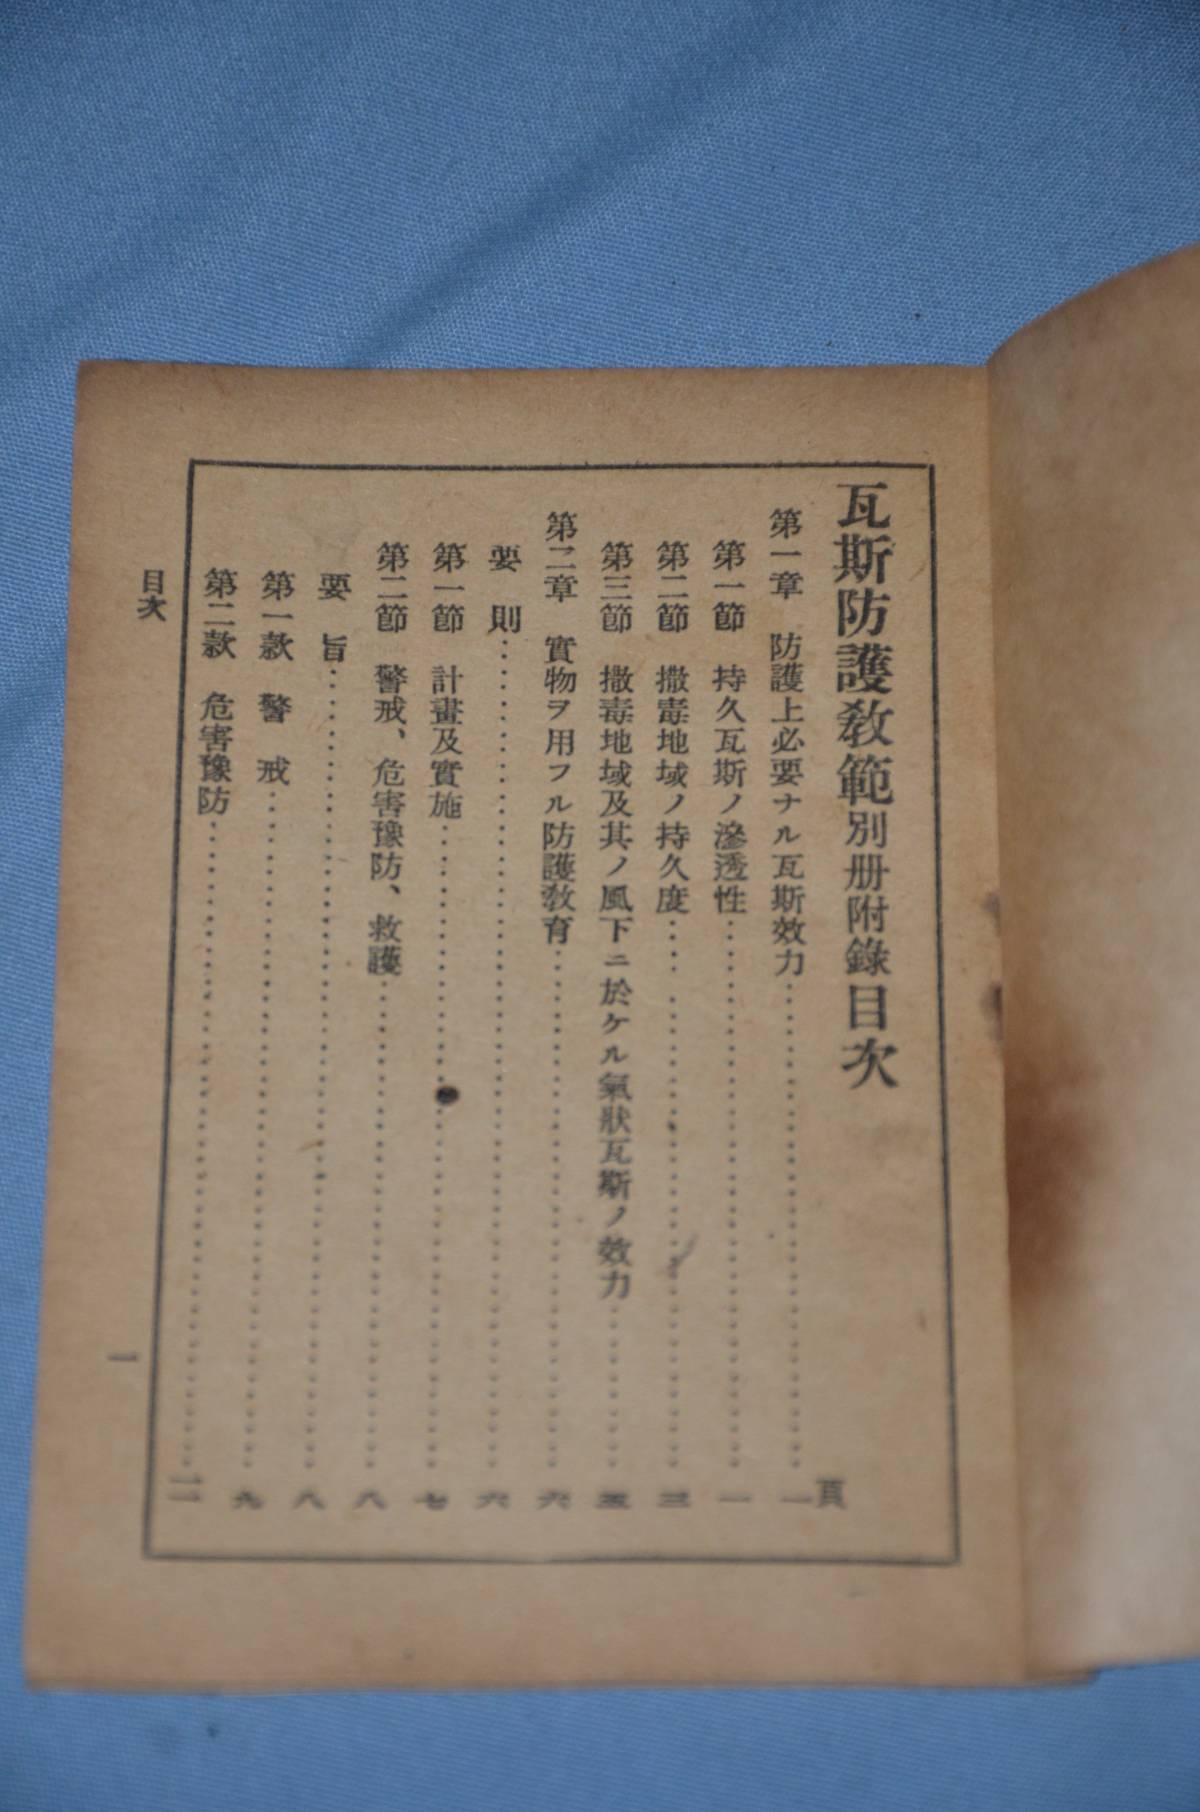 瓦斯防護教範別册附錄目次
頁
第一章 防護上必要ナル瓦斯效力……一
第一節 持久瓦斯ノ滲透性……一
第二節 撒毒地域ノ持久度……三
第三節 撒毒地域及其ノ風下ニ於ケル氣狀瓦斯ノ效力……五
第二章 實物ヲ用フル防護敎育……六
要則……六
第一節 計畫及實施……七
第二節 警戒、危害豫防、救護……八
要旨……八
第一款 警戒……九
第二款 危害豫防……一一
目次
一